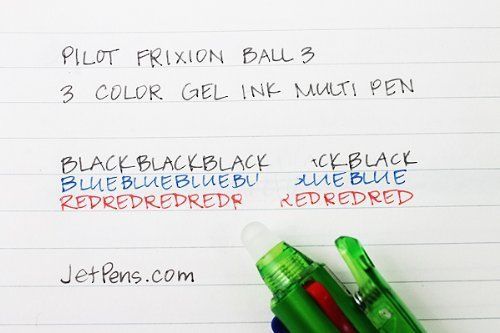 PILOT FRIXION BALL 3
3 COLOR GEL INK MULTI PEN
BLACKBLACKBLACK CKBLACK
BLUEBLUEBLUEBU LUEBLUE
REDREDREDREDR REDREDRED
JetPens.com